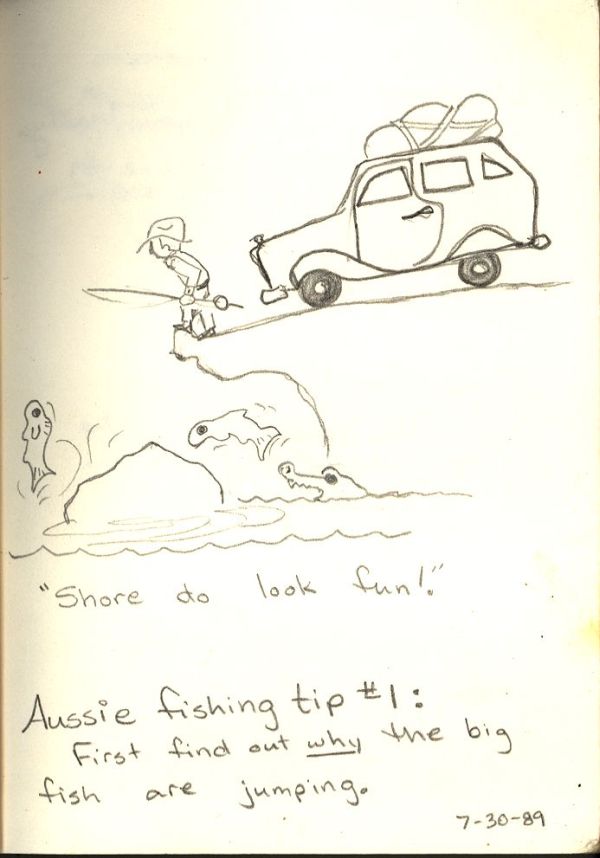 "Shore do look fun!"
Aussie fishing tip #1:
First find out why the big
fish are jumping.
7-30-89